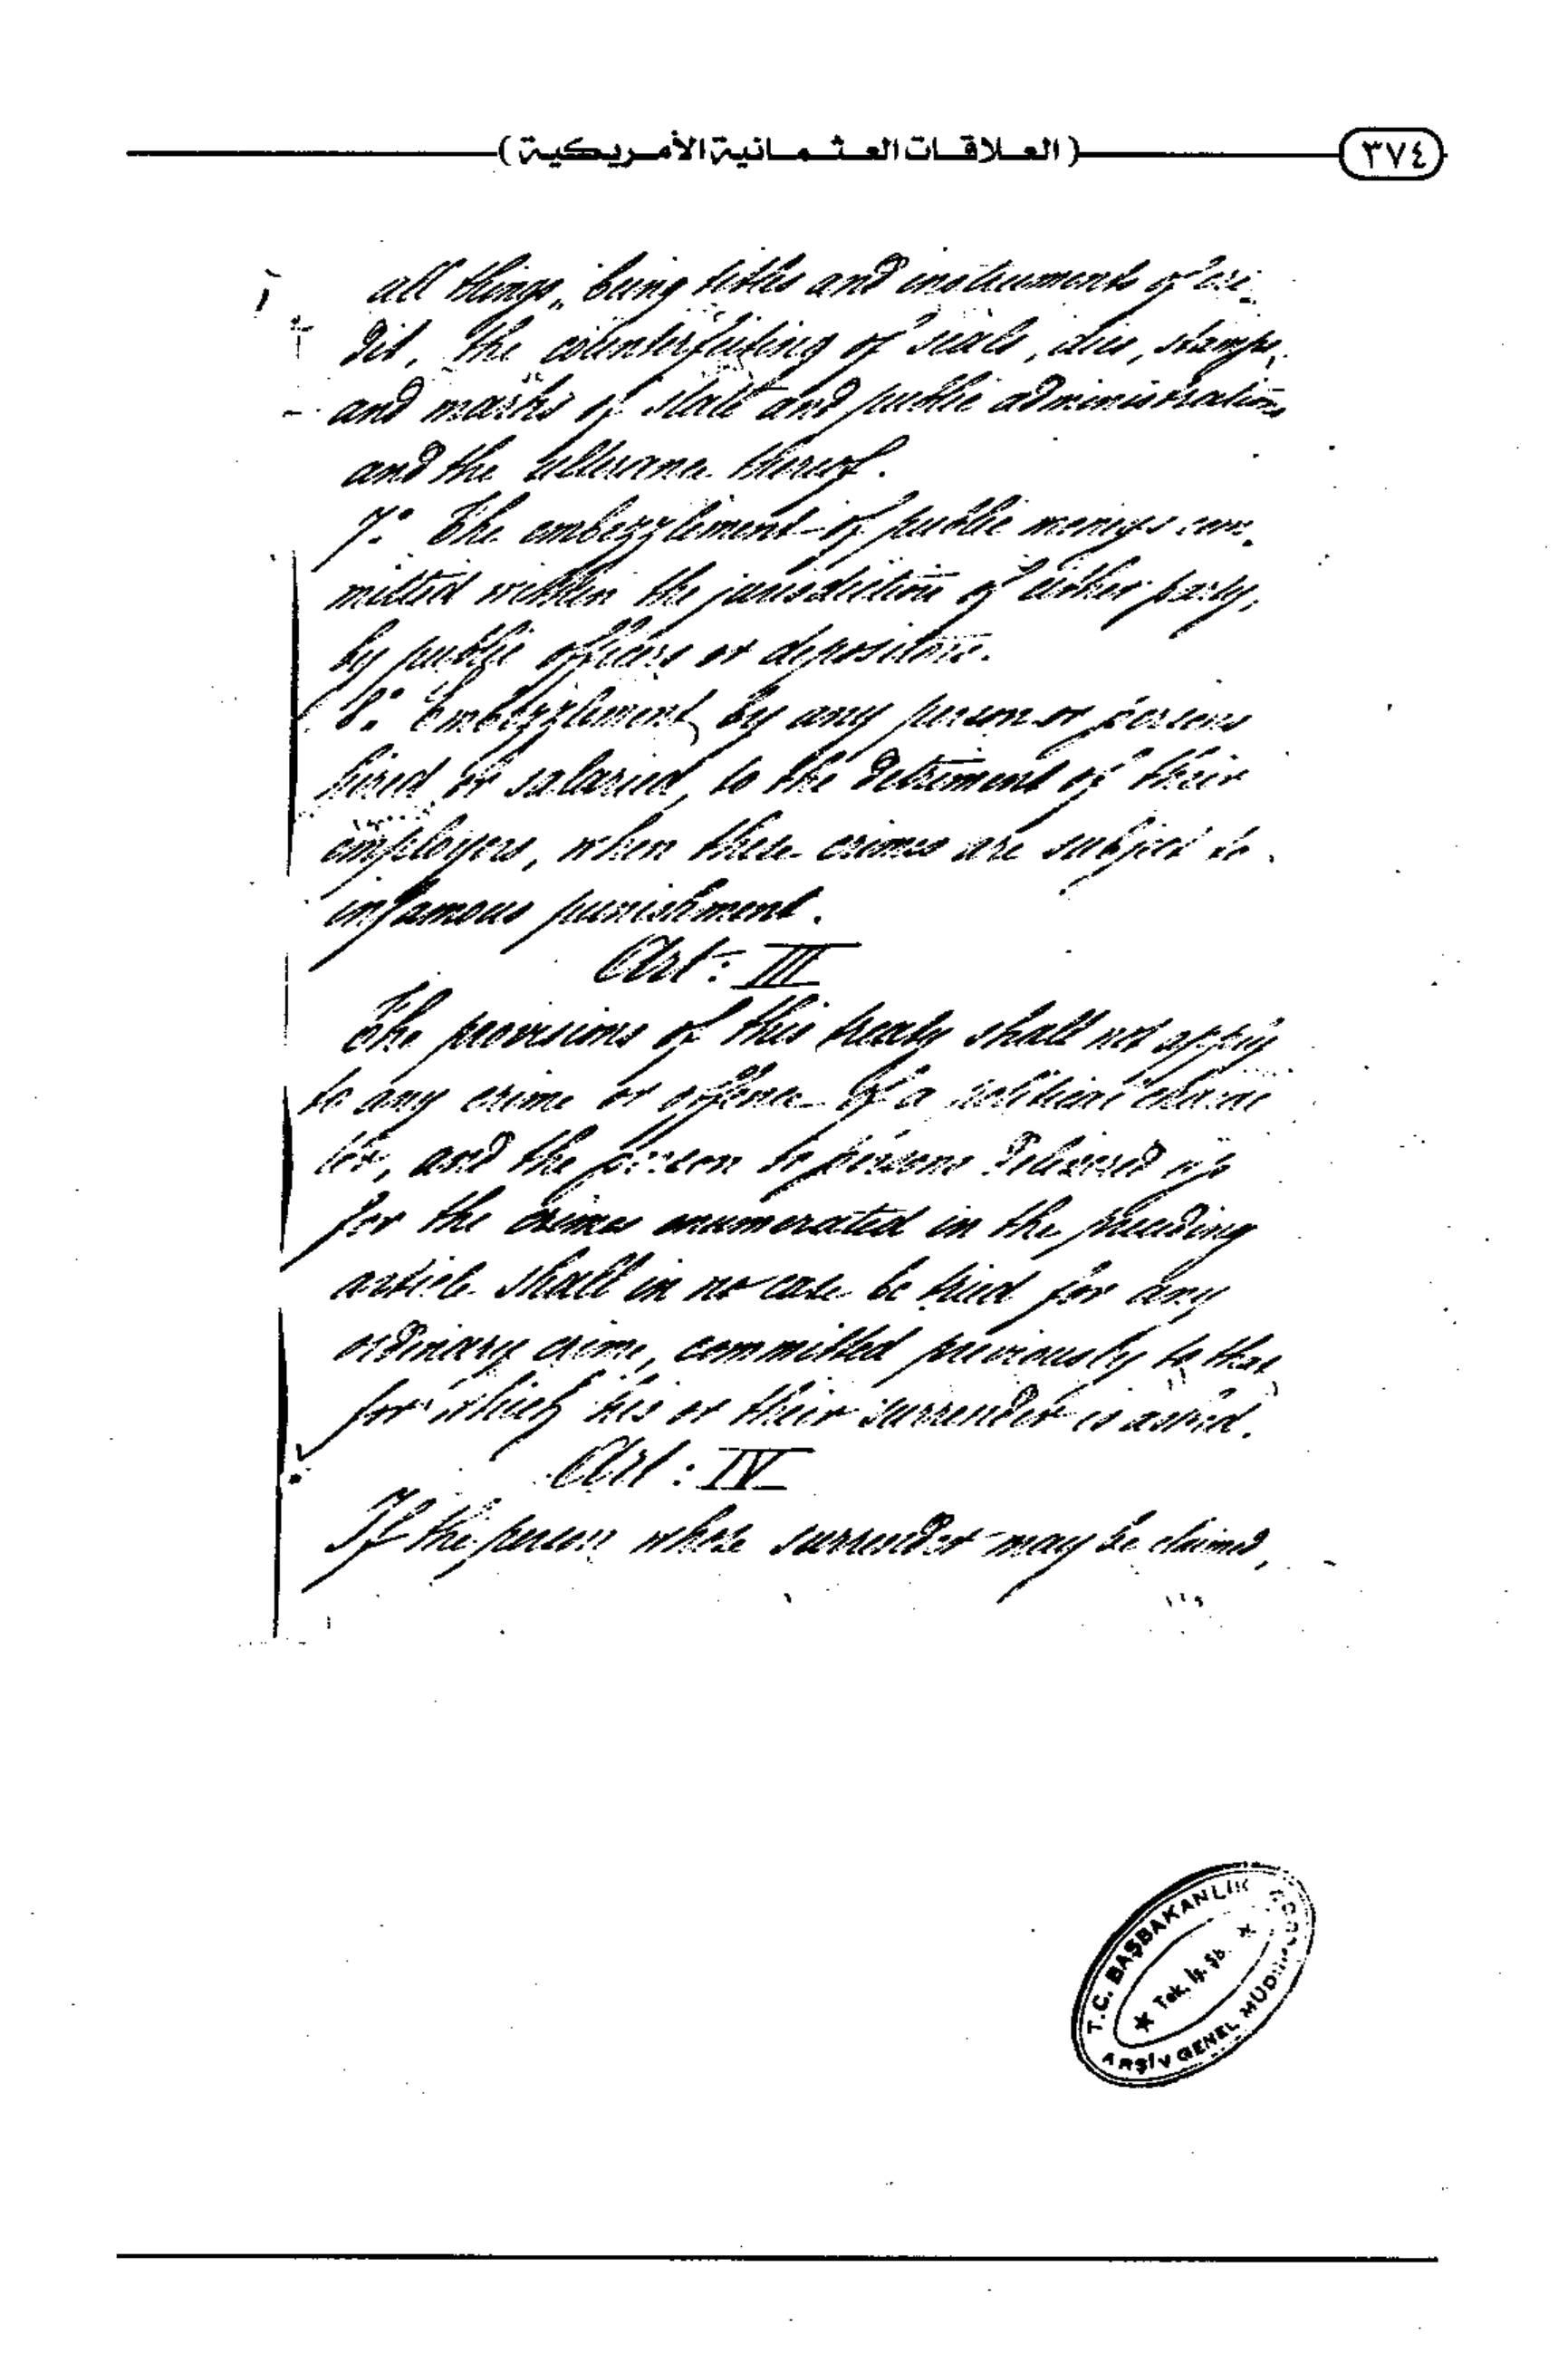 (العلاقات العثمانية الأمريكية)
٣٧٤
all things, being titles and instruments of cre-
dit, the counterfeiting of seals, dies, stamps,
and marks of state and public administrations
and the utterance thereof.
7: The embezzlement of public moneys com-
mitted within the jurisdiction of either party,
by public officers or depositors.
8: Embezzlement, by any person or persons
hired or salaried, to the detriment of their
employers, when these crimes are subject to
infamous punishment.
Art: III
The provisions of this treaty shall not apply
to any crime or offence of a political charac
ter, and the person or persons delivered up
for the crimes enumerated in the preceding
article shall in no case be tried for any
ordinary crime, committed previously to that
for which his or their surrender is asked.
Art: IV
If the person whose surrender may be claimed,
T.C. BAŞBAKANLIK
Tek. İş. Şb.
ARŞİV GENEL MÜDÜRLÜĞÜ